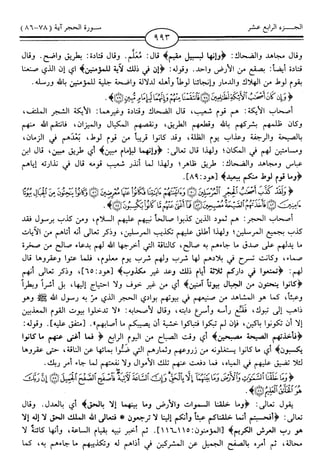 الجـــزء الرابع عشر
٩٩٣
سـورة الحجر آية (٧٨-٨٦)
وقال مجاهد والضحاك: ﴿وإنها لبسبيل مقيم﴾ قال: مُعْلَم. وقال قتادة: بطريق واضح. وقال
قتادة أيضاً: بصقع من الأرض واحد. وقوله: ﴿إن في ذلك لآية للمؤمنين﴾ أي إن الذي صنعنا
بقوم لوط من الهلاك والدمار وإنجائنا لوطاً وأهله لدلالة واضحة جلية للمؤمنين بالله ورسله.
﴿وَإِن كَانَ أَصْحَابُ الْأَيْكَةِ لَظَالِمِينَ ۝ فَانتَقَمْنَا مِنْهُمْ وَإِنَّهُمَا لَبِإِمَامٍ مُّبِينٍ ۝﴾.
أصحاب الأيكة: هم قوم شعيب، قال الضحاك وقتادة وغيرهما: الأيكة الشجر الملتف،
وكان ظلمهم بشركهم بالله وقطعهم الطريق، ونقصهم المكيال والميزان، فانتقم الله منهم
بالصيحة والرجفة وعذاب يوم الظلة، وقد كانوا قريباً من قوم لوط، بَعْدَهم في الزمان،
ومسامتين لهم في المكان؛ ولهذا قال تعالى: ﴿وإنهما لبإمام مبين﴾ أي طريق مبين، قال ابن
عباس ومجاهد والضحاك: طريق ظاهر؛ ولهذا لما أنذر شعيب قومه قال في نذارته إياهم
﴿وما قوم لوط منكم ببعيد﴾ [هود:٨٩].
﴿وَلَقَدْ كَذَّبَ أَصْحَابُ الْحِجْرِ الْمُرْسَلِينَ ۝ وَآتَيْنَاهُمْ آيَاتِنَا فَكَانُوا عَنْهَا مُعْرِضِينَ ۝ وَكَانُوا يَنْحِتُونَ مِنَ الْجِبَالِ بُيُوتًا
آمِنِينَ ۝ فَأَخَذَتْهُمُ الصَّيْحَةُ مُصْبِحِينَ ۝ فَمَا أَغْنَىٰ عَنْهُم مَّا كَانُوا يَكْسِبُونَ ۝﴾.
أصحاب الحجر: هم ثمود الذين كذبوا صالحاً نبيهم عليهم السلام، ومن كذب برسول فقد
كذب بجميع المرسلين؛ ولهذا أطلق عليهم تكذيب المرسلين، وذكر تعالى أنه أتاهم من الآيات
ما يدلهم على صدق ما جاءهم به صالح، كالناقة التي أخرجها الله لهم بدعاء صالح من صخرة
صماء، وكانت تسرح في بلادهم لها شرب ولهم شرب يوم معلوم، فلما عتوا وعقروها قال
لهم: ﴿تمتعوا في داركم ثلاثة أيام ذلك وعد غير مكذوب﴾ [هود:٦٥]، وذكر تعالى أنهم
﴿كانوا ينحتون من الجبال بيوتاً آمنين﴾ أي من غير خوف ولا احتياج إليها، بل أشراً وبطراً
وعبثاً، كما هو المشاهد من صنيعهم في بيوتهم بوادي الحجر الذي مرَّ به رسول الله ﷺ وهو
ذاهب إلى تبوك، فقَنَّع رأسه وأسرع دابته، وقال لأصحابه: «لا تدخلوا بيوت القوم المعذبين
إلا أن تكونوا باكين، فإن لم تبكوا فتباكوا خشية أن يصيبكم ما أصابهم». [متفق عليه]. وقوله:
﴿فأخذتهم الصيحة مصبحين﴾ أي وقت الصباح من اليوم الرابع ﴿فما أغنى عنهم ما كانوا
يكسبون﴾ أي ما كانوا يستغلونه من زروعهم وثمارهم التي ضنُّوا بمائها عن الناقة، حتى عقروها
لئلا تضيق عليهم في المياه، فما دفعت عنهم تلك الأموال ولا نفعتهم لما جاء أمر ربك.
﴿وَمَا خَلَقْنَا السَّمَاوَاتِ وَالْأَرْضَ وَمَا بَيْنَهُمَا إِلَّا بِالْحَقِّ وَإِنَّ السَّاعَةَ لَآتِيَةٌ فَاصْفَحِ الصَّفْحَ الْجَمِيلَ ۝ إِنَّ رَبَّكَ هُوَ
الْخَلَّاقُ الْعَلِيمُ ۝﴾.
يقول تعالى: ﴿وما خلقنا السموات والأرض وما بينهما إلا بالحق﴾ أي بالعدل. وقال
تعالى: ﴿أفحسبتم أنما خلقناكم عبثاً وأنكم إلينا لا ترجعون * فتعالى الله الملك الحق لا إله إلا
هو رب العرش الكريم﴾ [المؤمنون:١١٥،١١٦]. ثم أخبر نبيه بقيام الساعة، وأنها كائنة لا
محالة، ثم أمره بالصفح الجميل عن المشركين في أذاهم له وتكذيبهم ما جاءهم به، كما